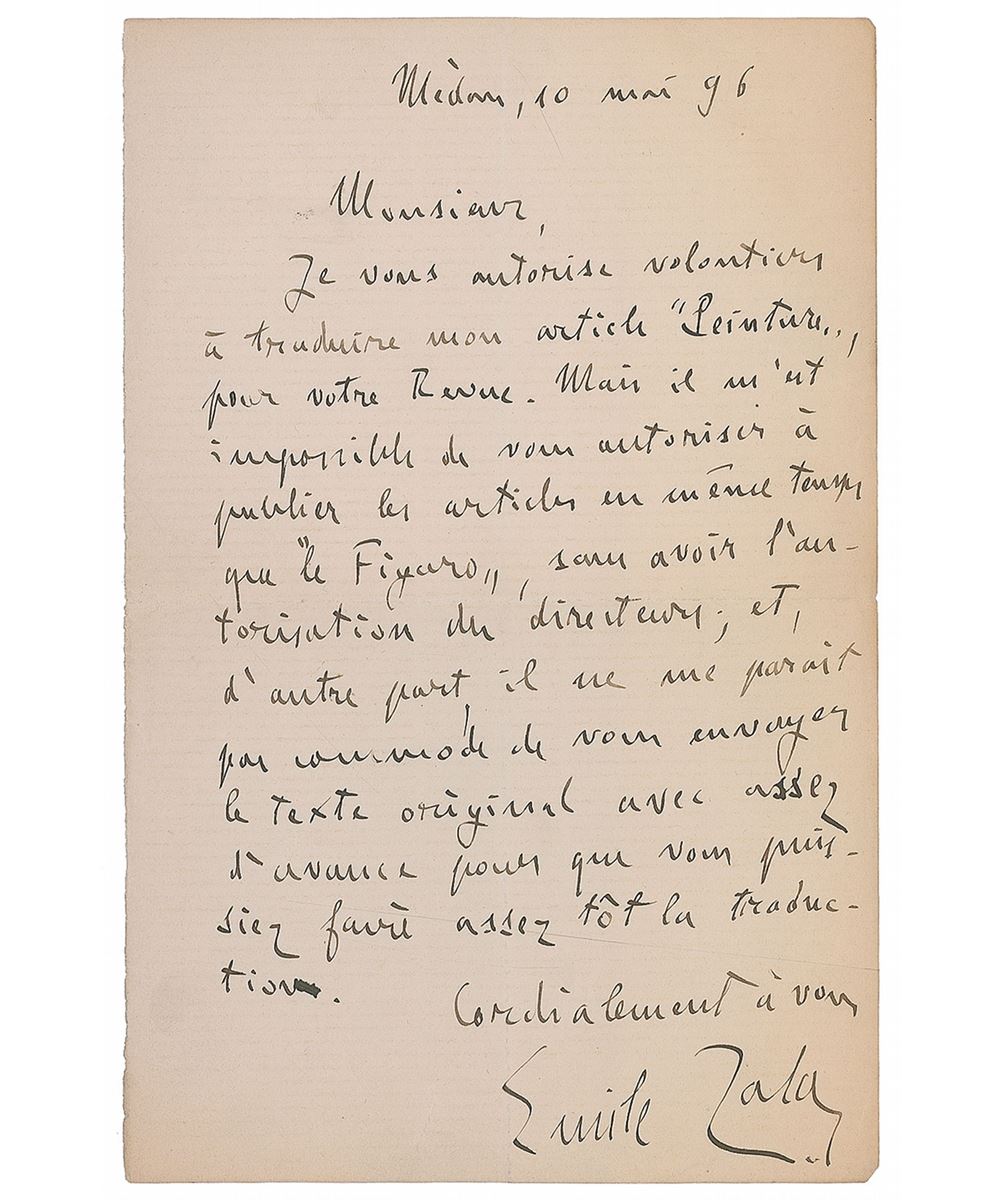 Médan, 10 mai 96
Monsieur,
Je vous autorise volontiers
à traduire mon article "Peinture„,
pour votre Revue. Mais il m'est
impossible de vous autoriser à
publier les articles en même temps
que "le Figaro„, sans avoir l'au-
torisation du directeur; et,
d'autre part, il ne me paraît
pas commode de vous envoyer
le texte original avec assez
d'avance pour que vous puis-
siez faire assez tôt la traduc-
tion.
Cordialement à vous
Emile Zola